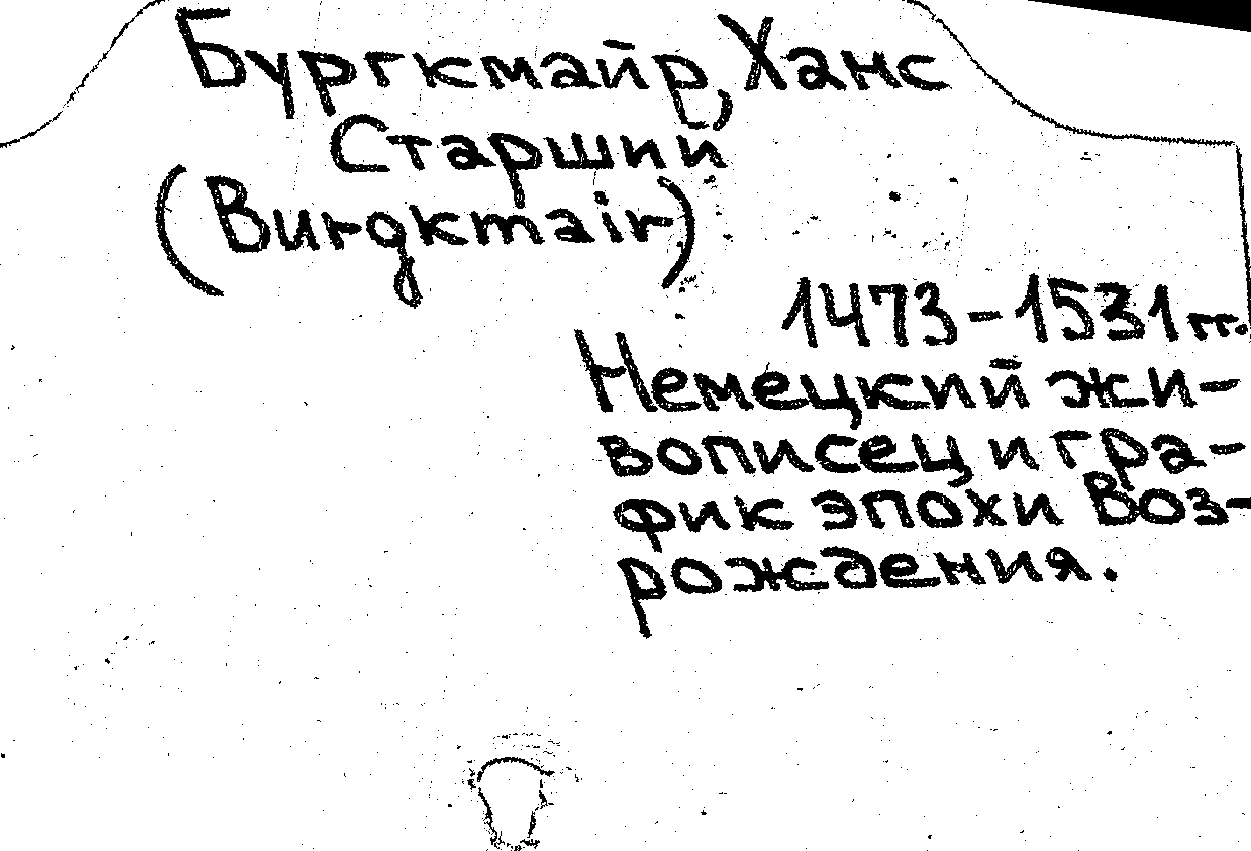 Бургкмайр, Ханс
Старший
(Burgkmair)
1473-1531 гг.
Немецкий жи-
вописец и гра-
фик эпохи Воз-
рождения.